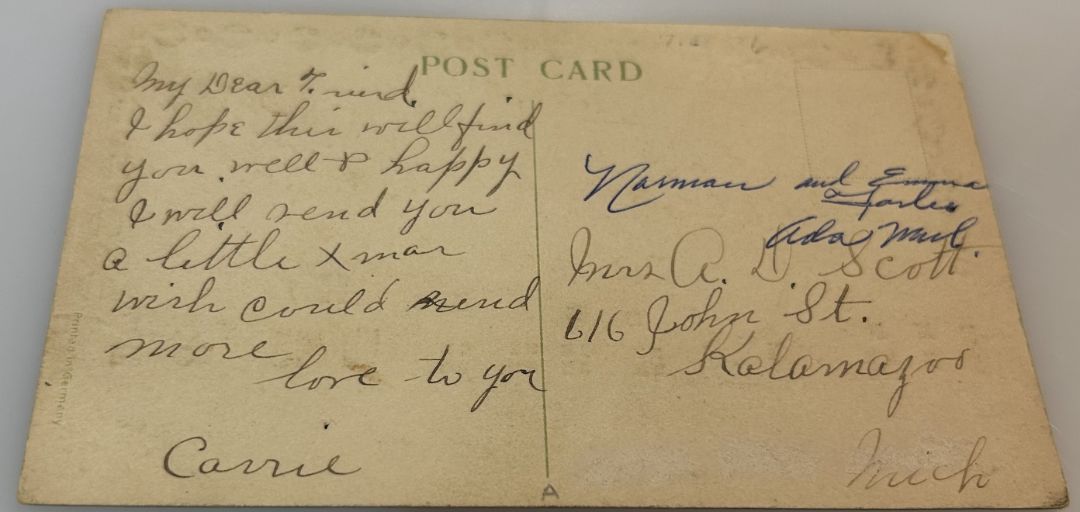 POST CARD
My Dear Friend,
I hope this will find
you well & happy
I will send you
a little Xmas
wish could send
more
love to you
Carrie
Norman and Emma
Ada Mich.
Mrs A. D. Scott
616 John St.
Kalamazoo
Mich
Printed in Germany
A